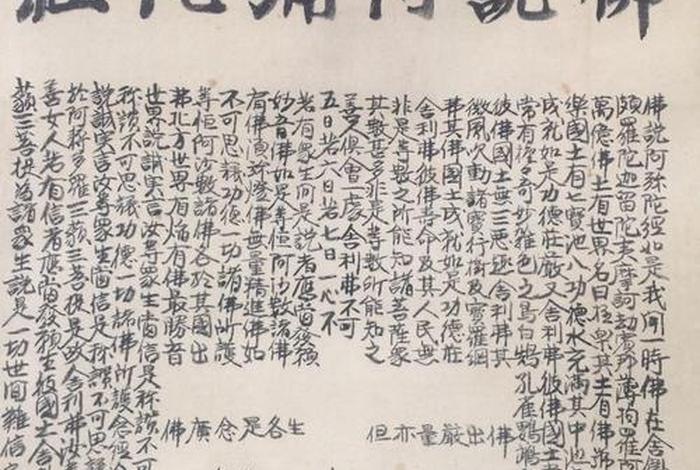 佛說阿彌陀經
佛說阿彌陀經如是我聞一時佛在舍衛
頗羅陀迦留陀夷摩訶劫賓那薄拘羅阿
萬億佛土有世界名曰極樂其土有佛號
樂國土有七寶池八功德水充滿其中池
成就如是功德莊嚴又舍利弗彼佛國土
常有種々奇妙雜色之鳥白鵠孔雀鸚鵡
彼佛國土無三惡趣舍利弗其佛
微風吹動諸寶行樹及寶羅網出
弗其佛國土成就如是功德莊嚴
舍利弗彼佛壽命及其人民無量
非是算數之所能知諸菩薩衆亦
其數甚多非是算數所能知之但
善人俱會一處舍利弗不可
五日若六日若七日一心不
若有衆生聞是說者應當發願生
妙音佛如是等恒河沙數諸佛各
有佛須弥燈佛無量精進佛如是
不可思議功德一切諸佛所護念
等恒河沙數諸佛各於其國出廣
弗北方世界有焰肩佛最勝音佛
世界說誠實言汝等衆生當信是称讃不可
称讃不可思議功德一切諸佛所護念經
說誠實言汝等衆生當信是称讃不可思議
於阿耨多羅三藐三菩提是故舍利弗汝等
善女人若有信者應當發願生彼國土舍
藐三菩提為諸衆生說是一切世間難信